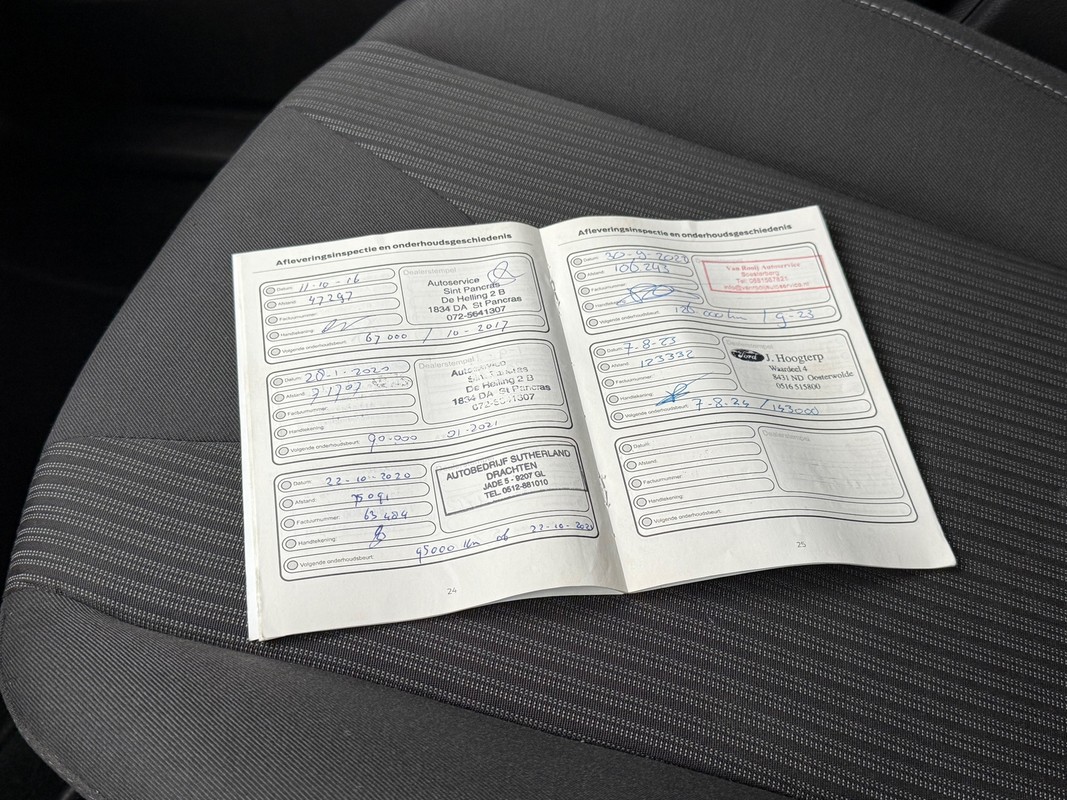 Afleveringsinspectie en onderhoudsgeschiedenis
Datum: 11-10-16
Afstand: 47297
Factuurnummer:
Handtekening:
Volgende onderhoudsbeurt: 67000 / 10-2017
Dealerstempel
Autoservice
Sint Pancras
De Helling 2 B
1834 DA St Pancras
072-5641307
Datum: 20-1-2020
Afstand: 71707
Factuurnummer:
Handtekening:
Volgende onderhoudsbeurt: 90.000 01-2021
Dealerstempel
Autoservice
Sint Pancras
De Helling 2 B
1834 DA St Pancras
072-5641307
Datum: 22-10-2020
Afstand: 75091
Factuurnummer: 63484
Handtekening:
Volgende onderhoudsbeurt: 95000 Km of 22-10-202
AUTOBEDRIJF SUTHERLAND
DRACHTEN
JADE 5 - 9207 GL
TEL. 0512-881010
24
Afleveringsinspectie en onderhoudsgeschiedenis
Datum: 30-9-202
Afstand: 106243
Factuurnummer:
Handtekening:
Volgende onderhoudsbeurt: 126000 km / 9-23
Van Rooij Autoservice
Datum: 7-8-23
Afstand: 123332
Factuurnummer:
Handtekening:
Volgende onderhoudsbeurt: 7-8-24 / 143000
Ford J. Hoogterp
Waardeel 4
8431 ND Oosterwolde
0516 515800
Datum:
Afstand:
Factuurnummer:
Handtekening:
Volgende onderhoudsbeurt:
Dealerstempel
25